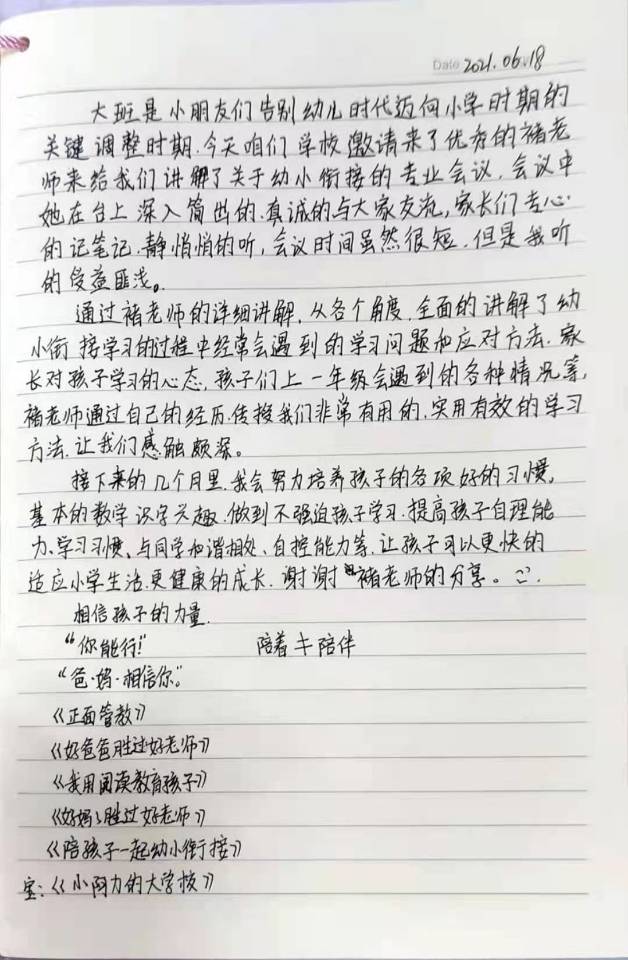 Date 2021.06.18
大班是小朋友们告别幼儿时代迈向小学时期的
关键调整时期.今天咱们学校邀请来了优秀的褚老
师来给我们讲解了关于幼小衔接的专业会议.会议中
她在台上深入简出的.真诚的与大家交流,家长们专心
的记笔记.静悄悄的听,会议时间虽然很短.但是我听
的受益匪浅。
通过褚老师的详细讲解.从各个角度.全面的讲解了幼
小衔接学习的过程中经常会遇到的学习问题和应对方法.家
长对孩子学习的心态,孩子们上一年级会遇到的各种情况等,
褚老师通过自己的经历.传授我们非常有用的.实用有效的学习
方法.让我们感触颇深。
接下来的几个月里.我会努力培养孩子的各项好的习惯,
基本的数学识字兴趣.做到不强迫孩子学习.提高孩子自理能
力、学习习惯、与同学和谐相处、自控能力等.让孩子可以更快的
适应小学生活.更健康的成长.谢谢褚老师的分享。
相信孩子的力量.
“你能行!” 陪着≠陪伴
“爸·妈·相信你”
《正面管教》
《好爸爸胜过好老师》
《我用阅读教育孩子》
《好妈妈胜过好老师》
《陪孩子一起幼小衔接》
宝:《小阿力的大学校》